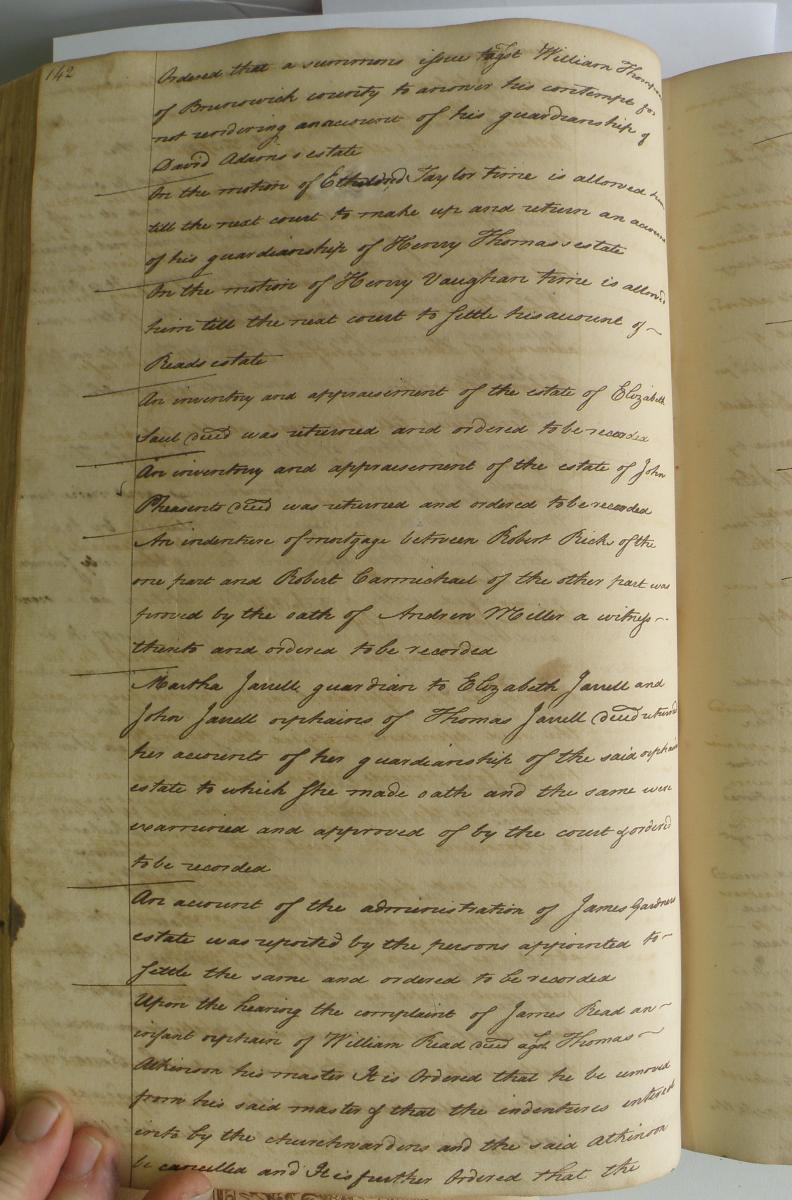 142
Ordered that a summons issue agst William Thompson
of Brunswick county to answer his contempt for
not rendering an account of his guardianship of
David Adams's estate
On the motion of Etheldred Taylor time is allowed him
till the next court to make up and return an account
of his guardianship of Henry Thomas's estate
On the motion of Henry Vaughan time is allowed
him till the next court to settle his account of
Reads estate
An inventory and appraisement of the estate of Elizabeth
Saul decd was returned and ordered to be recorded
An inventory and appraisement of the estate of John
Pheasents decd was returned and ordered to be recorded
An indenture of mortgage between Robert Ricks of the
one part and Robert Carmichael of the other part was
proved by the oath of Andrew Miller a witness
thereto and ordered to be recorded
Martha Jarrell guardian to Elizabeth Jarrell and
John Jarrell orphains of Thomas Jarrell decd returned
her accounts of her guardianship of the said orphains
estate to which she made oath and the same were
examined and approved of by the court & ordered
to be recorded
An account of the administration of James Gardners
estate was reported by the persons appointed to
settle the same and ordered to be recorded
Upon the hearing the complaint of James Read an
infant orphain of William Read decd agst Thomas
Atkinson his master It is Ordered that he be removed
from his said master & that the indentures entered
into by the churchwardens and the said Atkinson
be cancelled and It is further Ordered that the